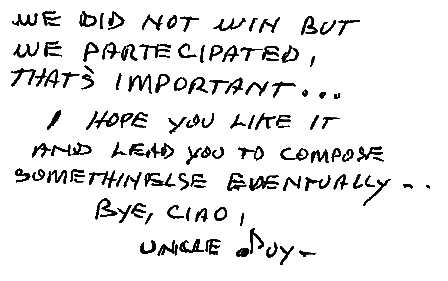 WE DID NOT WIN BUT
WE PARTECIPATED,
THAT'S IMPORTANT...
I HOPE YOU LIKE IT
AND LEAD YOU TO COMPOSE
SOMETHINELSE EVENTUALLY...
BYE, CIAO,
UNCLE